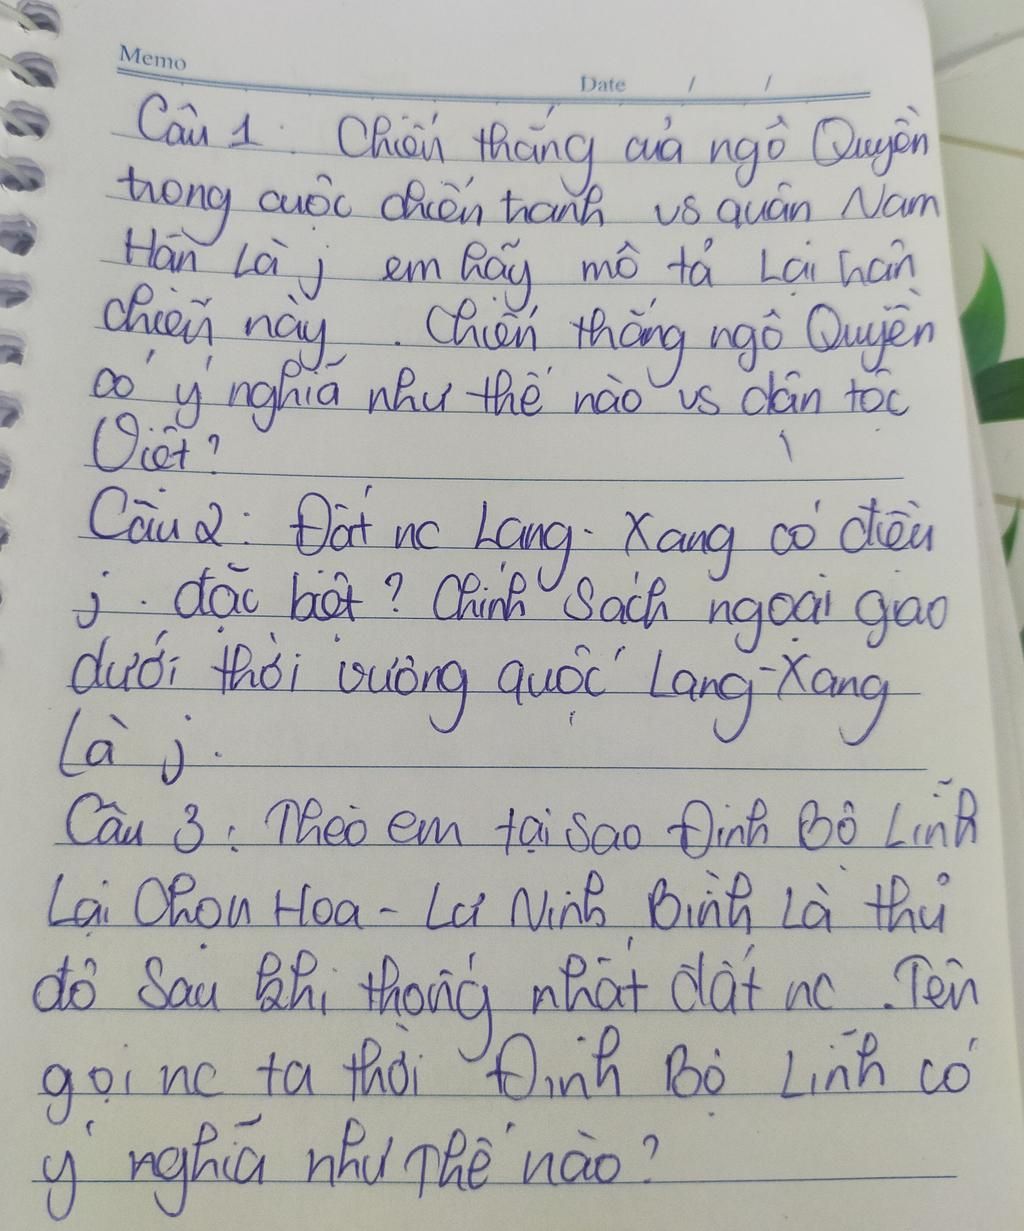 Memo
Date / /
Câu 1: Chiến thắng của ngô Quyền
trong cuộc chiến tranh vs quân Nam
Hán Là j em hãy mô tả Lại trận
chiến này. Chiến thắng ngô Quyền
có ý nghĩa như thế nào vs dân tộc
Việt?
Câu 2: Đất nc Lang-Xang có điều
j. đặc biệt? Chính Sách ngoại giao
dưới thời vương quốc Lang-Xang
Là j.
Câu 3: Theo em tại sao Đinh Bộ Lĩnh
Lại Chọn Hoa-Lư Ninh Bình Là thủ
đô Sau khi thống nhất đất nc. Tên
gọi nc ta thời Đinh Bộ Lĩnh có
ý nghĩa như Thế nào?